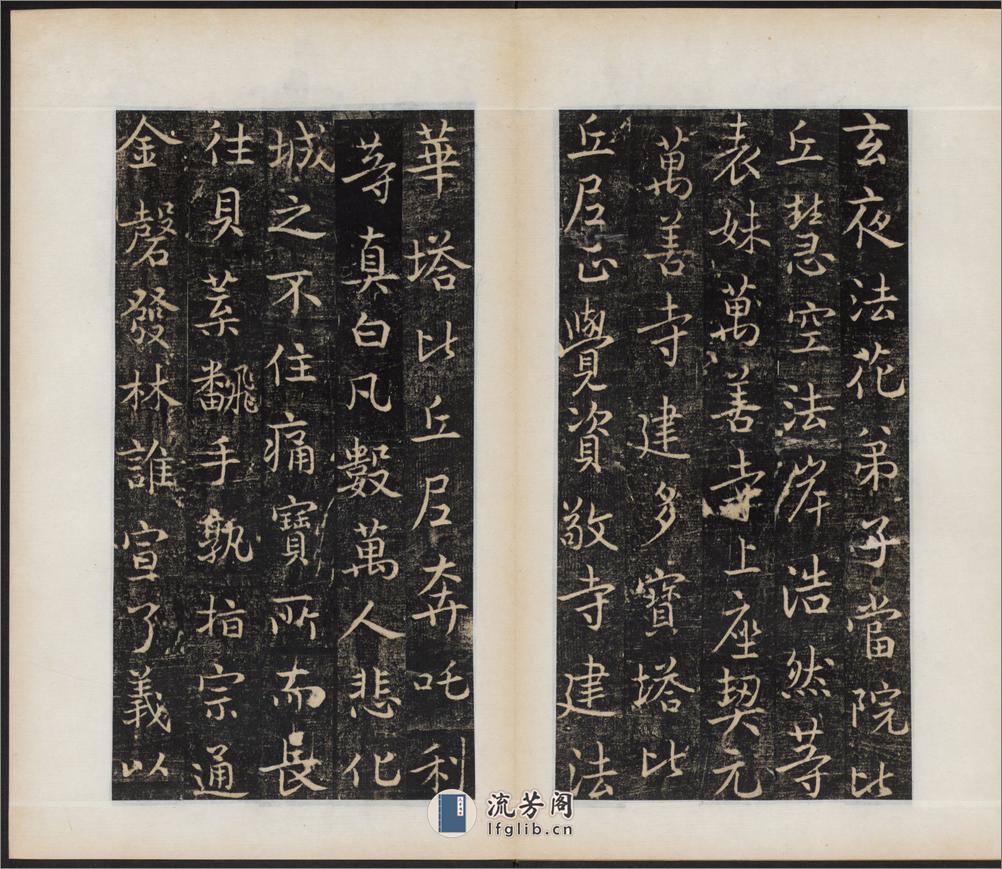 玄夜法花弟子當院比
丘慧空法岸浩然等
表妹萬善寺上座契元
萬善寺建多寶塔比
丘尼正覺資敬寺建法
華塔比丘尼奔吒利
等真白凡數萬人悲化
城之不住痛寶所而長
往貝葉翻手孰指宗通
金磬發林誰宣了義以
流芳阁
lfglib.cn